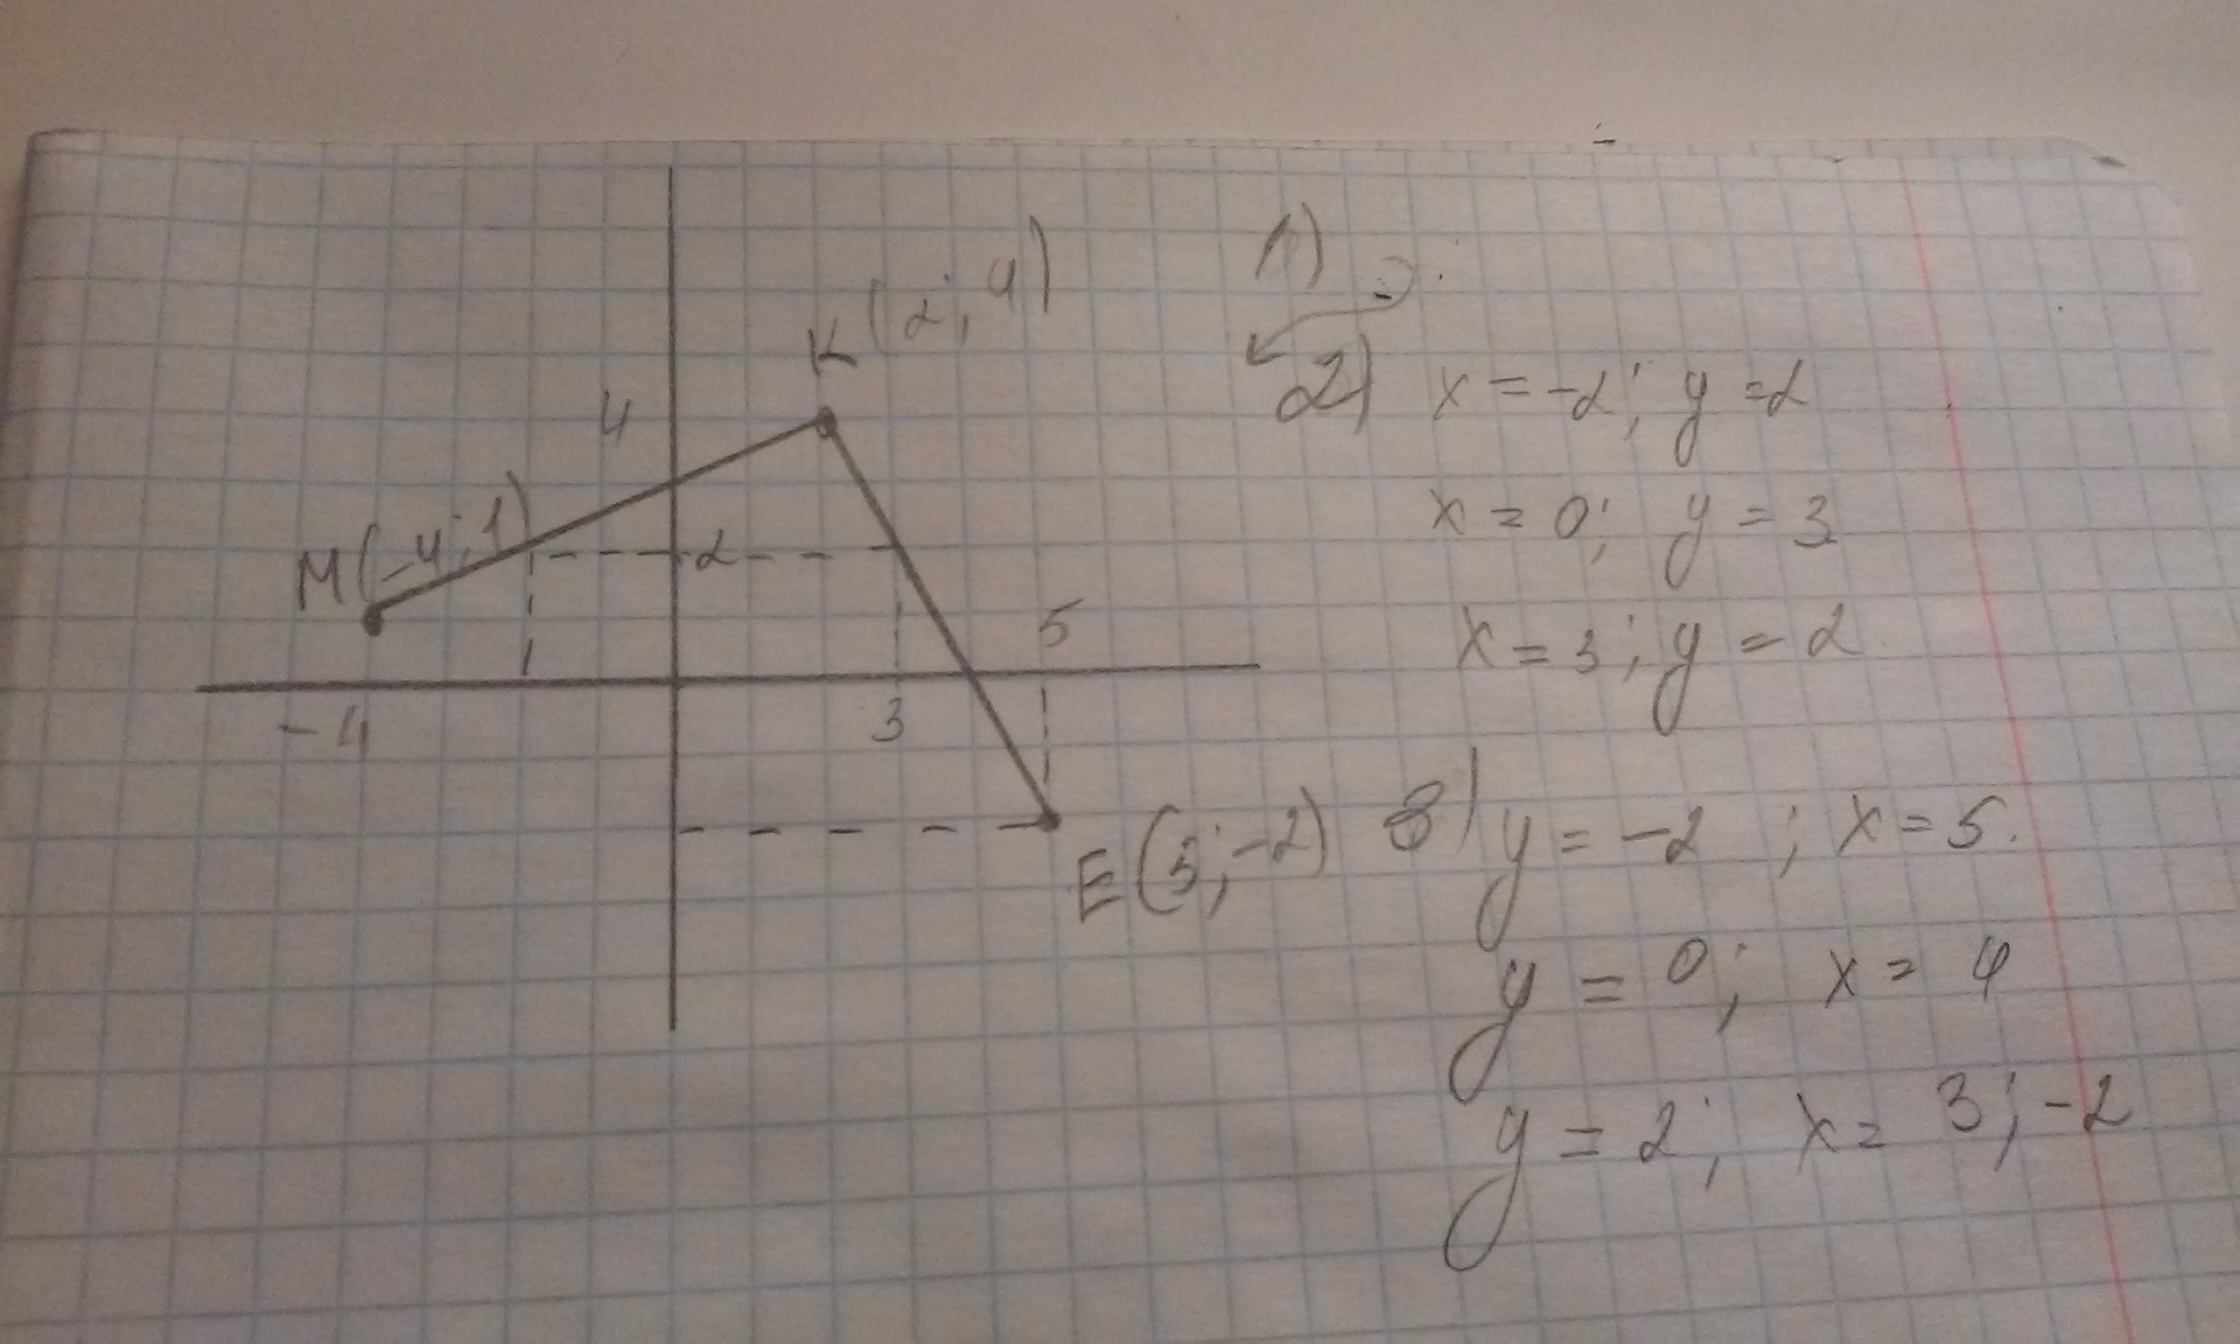 K(2; 4)
4
M(-4; 1)
2
5
-4
3
E(5; -2)
1)
2) x = -2; y = 2
x = 0; y = 3
x = 3; y = 2
3) y = -2 ; x = 5.
y = 0; x = 4
y = 2; x = 3; -2